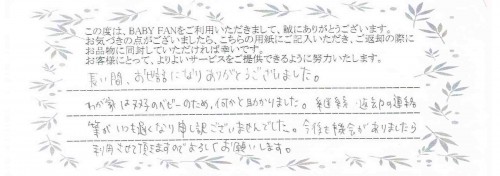 この度は、BABY FANをご利用いただきまして、誠にありがとうございます。
お気づきの点がございましたら、こちらの用紙にご記入いただき、ご返却の際に
お品物に同封していただければ幸いです。
お客様にとって、よりよいサービスをご提供できるように努力いたします。
長い間、お世話になりありがとうございました。
わが家は双子のベビーのため、何かと助かりました。継続・返却の連絡
等がいつも遅くなり申し訳ございませんでした。今後も機会がありましたら
利用させて頂きますのでよろしくお願いします。